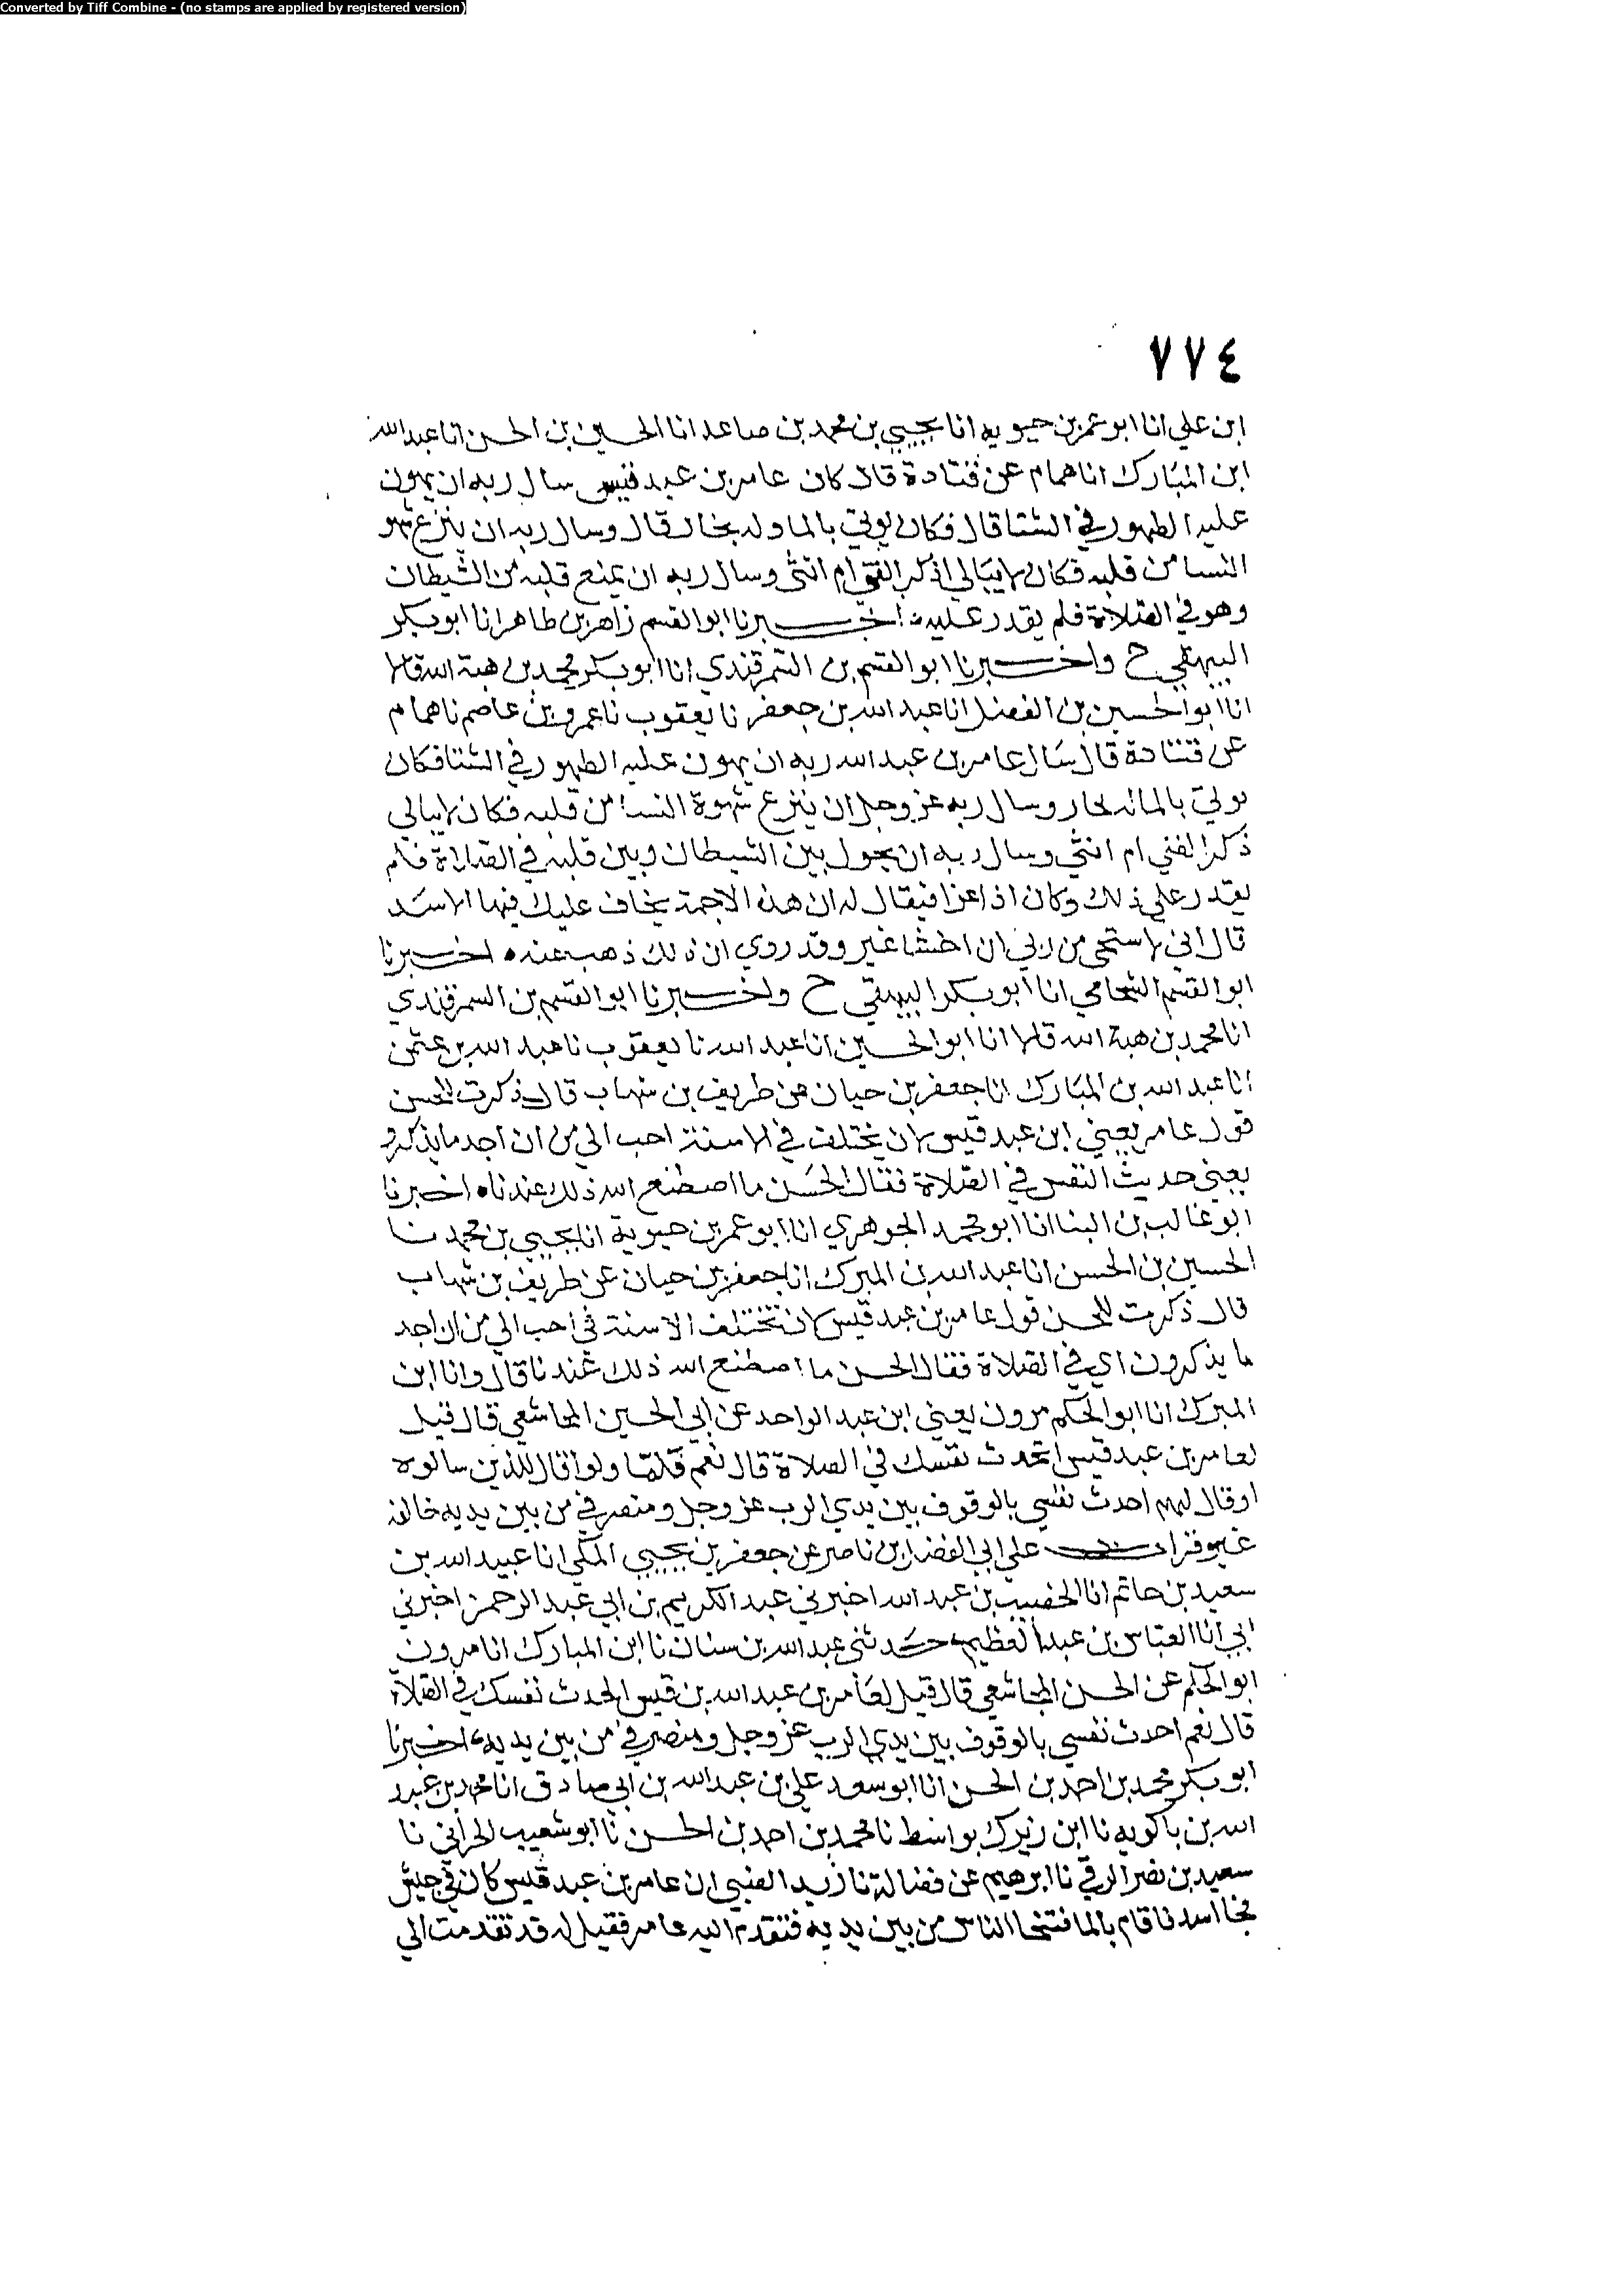 Converted by Tiff Combine - (no stamps are applied by registered version)
٧٧٤
ابن علي انا ابو عمر بن حيويه انا يحيى بن محمد بن صاعد انا الحسين بن الحسن انا عبد الله
ابن المبارك انا همام عن قتادة قال كان عامر بن عبد قيس سال ربه ان يهون
عليه الطهور في الشتا قال فكان يوتى بالما وله بخار قال وسال ربه ان ينزع شهو
النسا من قلبه فكان لا يبالي اذكر القي ام انثى وسال ربه ان يمنع قلبه من الشيطان
وهو في الصلاة فلم يقدر عليه اخبرنا ابو القسم زاهر بن طاهر انا ابو بكر
البيهقي ح واخبرنا ابو القسم بن السمرقندي انا ابو بكر محمد بن هبة الله قالا
انا ابو الحسين بن الفضل انا عبد الله بن جعفر نا يعقوب نا عمرو بن عاصم نا همام
عن قتادة قال سال عامر بن عبد الله ربه ان يهون عليه الطهور في الشتا فكان
يوتى بالما له بخار وسال ربه عز وجل ان ينزع شهوة النسا من قلبه فكان لا يبالي
ذكرا لقي ام انثى وسال ربه ان يحول بين الشيطان وبين قلبه في الصلاة فلم
يقدر على ذلك وكان اذا غزا فيقال له ان هذه الاجمة يخاف عليك فيها الاسد
قال اني لاستحي من ربي ان اخشا غير وقد روي ان ذلك ذهب عنه اخبرنا
ابو القسم الشحامي انا ابو بكر البيهقي ح واخبرنا ابو القسم بن السمرقندي
انا محمد بن هبة الله قالا انا ابو الحسين انا عبد الله نا يعقوب نا عبد الله بن عثمن
انا عبد الله بن المبارك انا جعفر بن حيان عن طريف بن شهاب قال ذكرت للحسن
قول عامر يعني ابن عبد قيس لان يختلف في الاسنة احب الي من ان اجد ما يذكرو
يعني حديث النفس في الصلاة فقال الحسن ما اصطنع الله ذلك عندنا اخبرنا
ابو غالب بن البنا انا ابو محمد الجوهري انا ابو عمر بن حيوية انا يحيى بن محمد نا
الحسين بن الحسن انا عبد الله بن المبرك انا جعفر بن حيان عن طريف بن شهاب
قال ذكرت للحسن قول عامر بن عبد قيس لان تختلف الاسنة في احب الي من ان اجد
ما يذكرون اي في الصلاة فقال الحسن ما اصطنع الله ذلك عندنا قال وانا ابن
المبرك انا ابو الحكم مرون يعني ابن عبد الواحد عن ابي الحسين المجاشعي قال قيل
لعامر بن عبد قيس اتحدث نفسك في الصلاة قال نعم فلما ولوا قال للذين سالوه
او قال لهم احدث نفسي بالوقوف بين يدي الرب عز وجل ومنصرفي من بين يديه خالفه
غيره قرات على ابي الفضل بن ناصر عن جعفر بن يحيى المكي انا عبيد الله بن
سعيد بن حاتم انا الخصيب بن عبد الله اخبرني عبد الكريم بن ابي عبد الرحمن اخبرني
ابي انا العباس بن عبد العظيم حدثني عبد الله بن سنان نا ابن المبارك انا مرون
ابو الحكم عن الحسن المجاشعي قال قيل لعامر بن عبد الله بن قيس اتحدث نفسك في الصلاة
قال نعم احدث نفسي بالوقوف بين يدي الرب عز وجل ومنصرفي من بين يديه اخبرنا
ابو بكر محمد بن احمد بن الحسن انا ابو سعد علي بن عبد الله بن ابي صادق انا محمد بن عبد
الله بن باكويه نا ابن زيرك بواسط نا محمد بن احمد بن الحسن نا ابو شعيب الحراني نا
سعيد بن نصر الرقي نا ابرهيم عن فضالة نا زيد العنبي ان عامر بن عبد قيس كان في جيش
فجا اسد فاقام بالما فتنحا الناس من بين يديه فتقدم اليه عامر فقيل له قد تقدمت الي